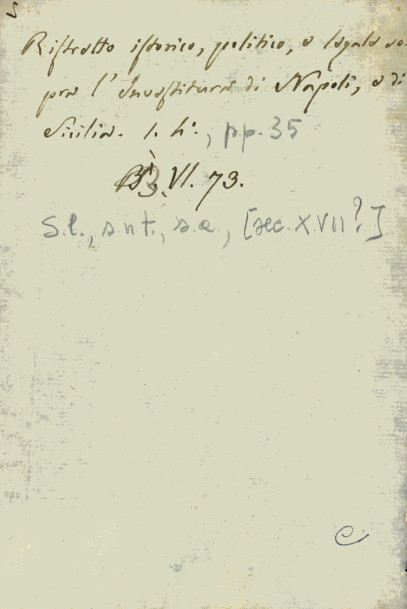 Ristretto istorico, politico, e legale so
pra l'Investitura di Napoli, e di
Sicilia. 1. 4°., pp. 35
B3. VI. 73.
S.l., s.n.t., s.a., [sec. XVII?]
e